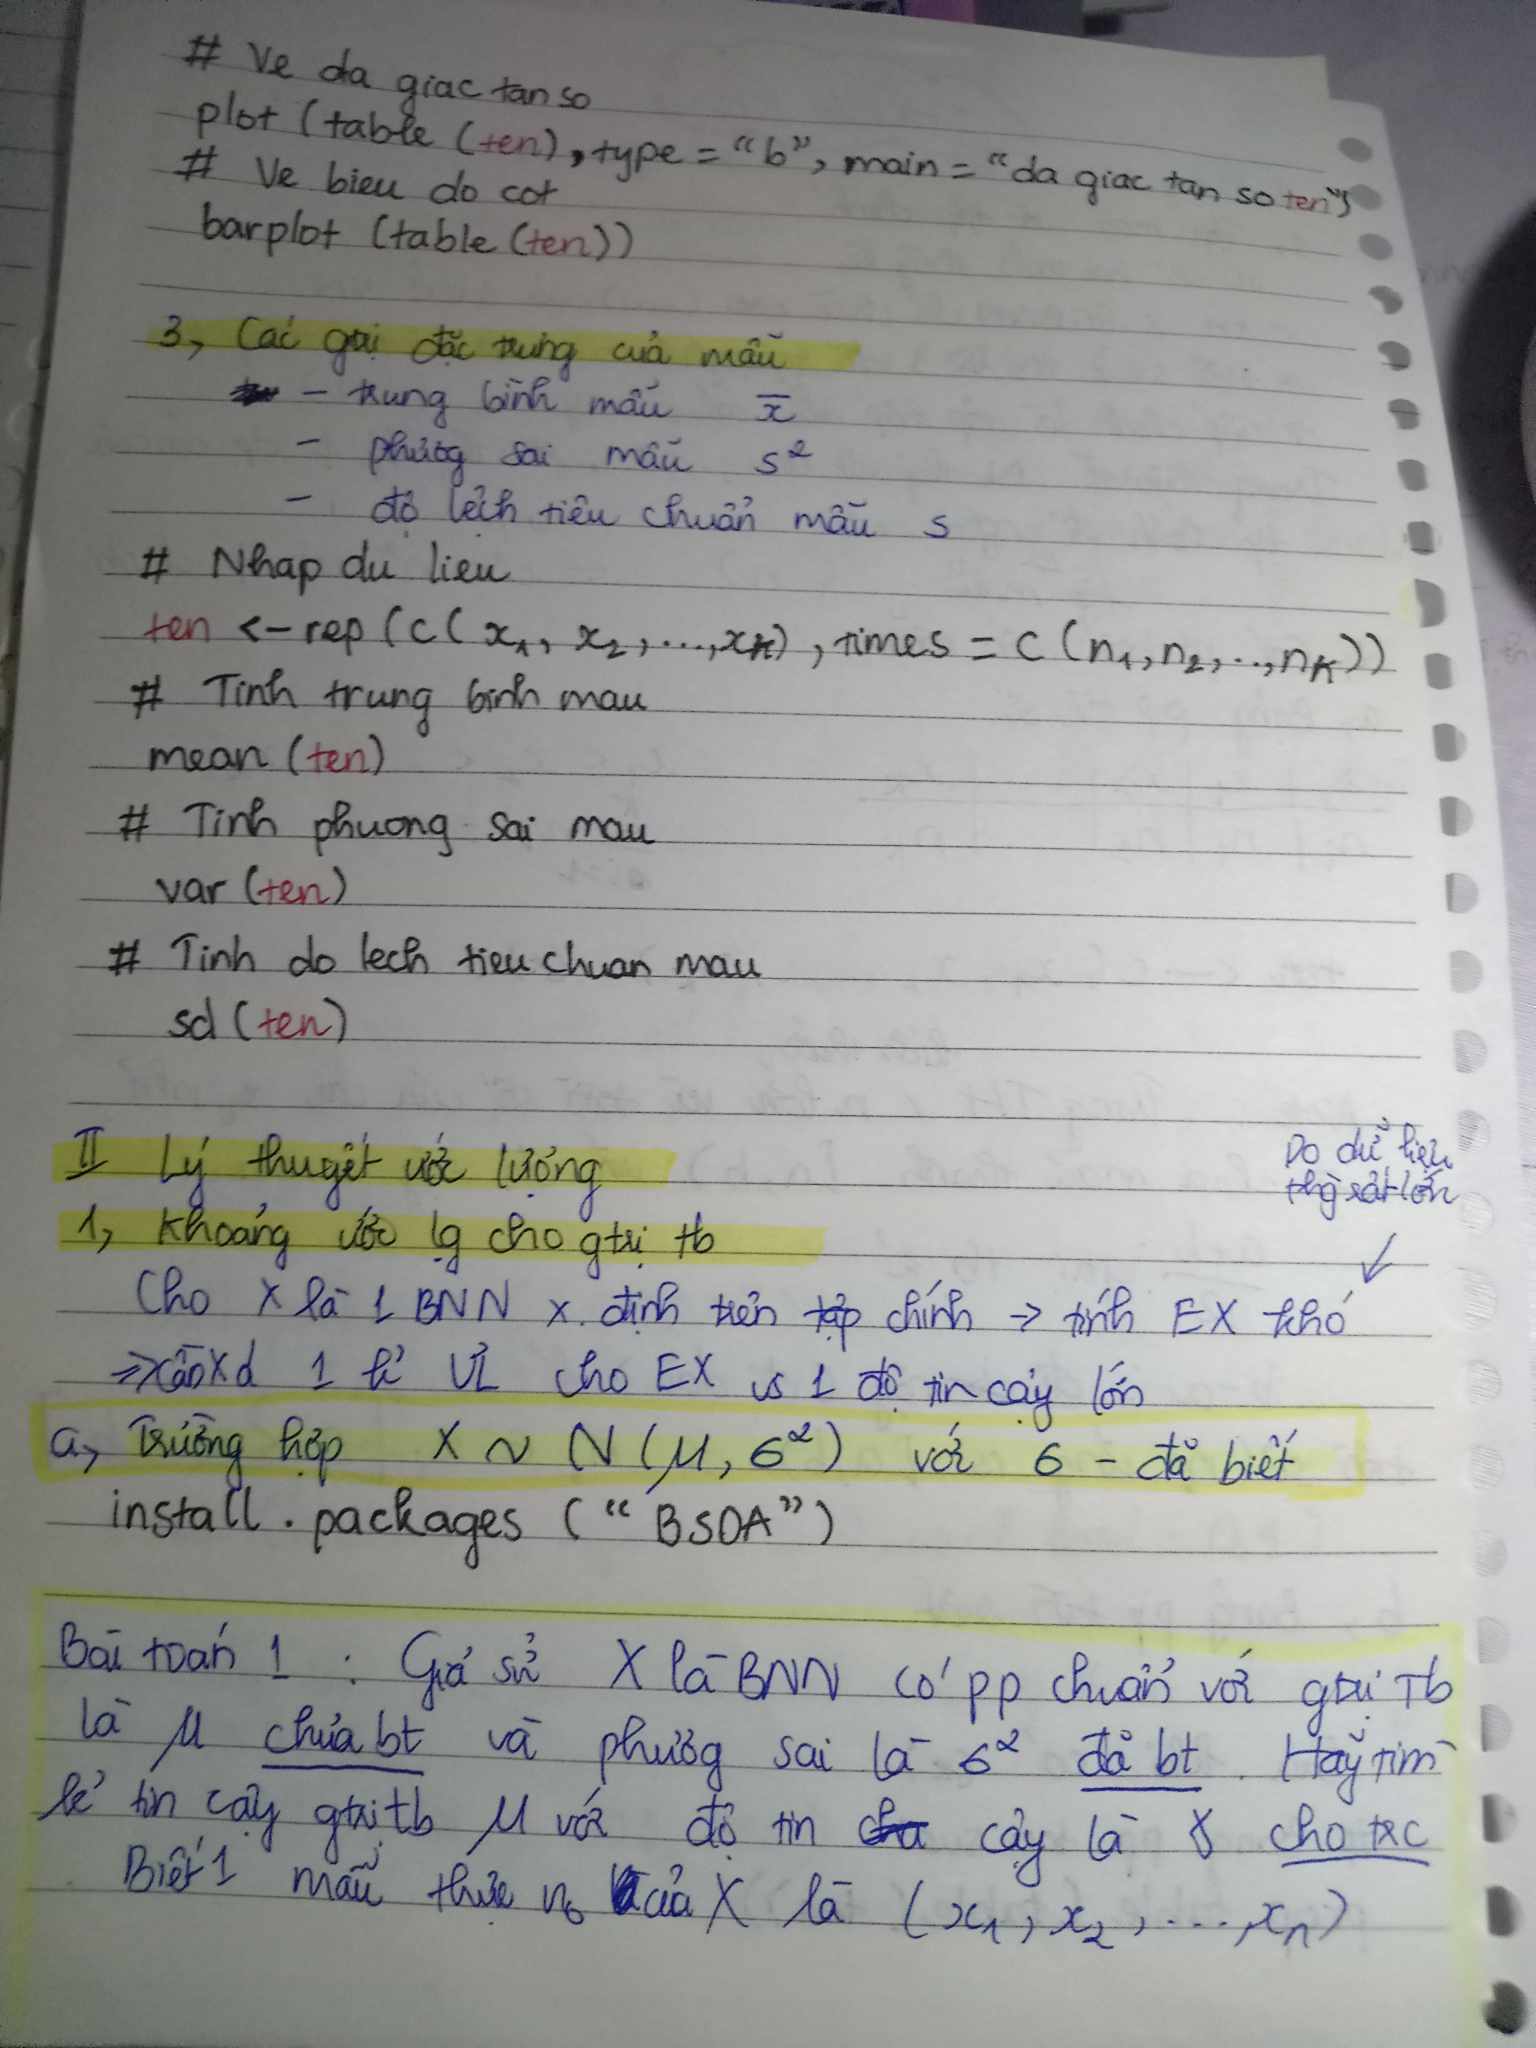 # Ve da giac tan so
plot (table (ten), type = “b”, main = “da giac tan so ten”)
# Ve bieu do cot
barplot (table (ten))
3, Các gtrị đặc trưng của mẫu
- trung bình mẫu x̅
- phương sai mẫu s²
- độ lệch tiêu chuẩn mẫu s
# Nhap du lieu
ten <- rep (c( x₁, x₂, ..., xₖ), times = c (n₁, n₂, .., nₖ))
# Tinh trung binh mau
mean (ten)
# Tinh phuong sai mau
var (ten)
# Tinh do lech tieu chuan mau
sd (ten)
II Lý thuyết ước lượng
Do dữ liệu
thg rất lớn
1, Khoảng ước lg cho gtrị tb
Cho X là 1 BNN x. định trên tập chính → tính EX khó
⇒ cần xd 1 k² ƯL cho EX vs 1 độ tin cậy lớn
a, Trường hợp X ~ N (μ, σ²) với σ - đã biết
install . packages (“BSDA”)
Bài toán 1 : Giả sử X là BNN có pp chuẩn với gtrị Tb
là μ chưa bt và phương sai là σ² đã bt. Hãy tìm
k² tin cậy gtrị tb μ với độ tin cậy là γ cho trc
Biết 1 mẫu thực no của X là (x₁, x₂, ..., xₙ)